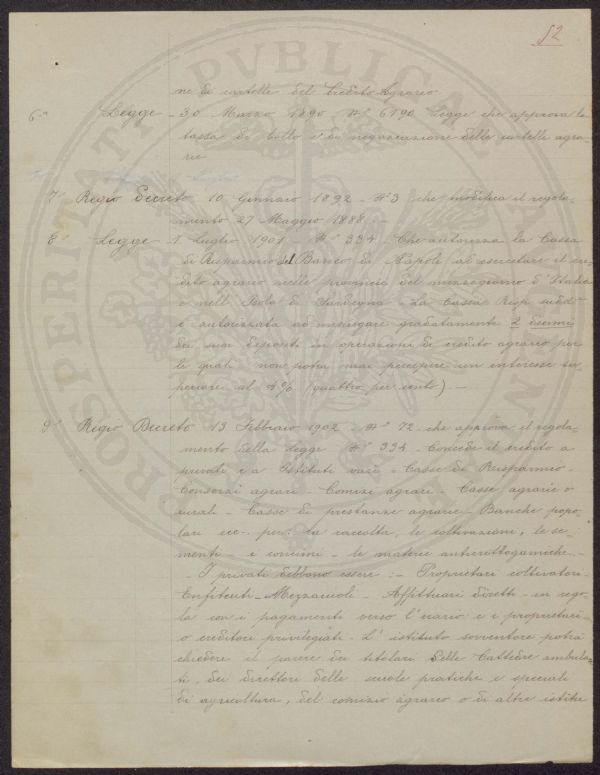 52
ne di cartelle del Credito Agrario
6° Legge - 30 Marzo 1890 - N° 6790 Legge che approva la
tassa di bollo e di negoziazione delle cartelle agra-
rie
7° Regio Decreto 10 Gennaio 1892 - N° 3 che modifica il regola-
mento 27 Maggio 1888. -
8° Legge - 1 Luglio 1901 - N° 334 - Che autorizza la Cassa
di Risparmio del Banco di Napoli ad esercitare il cre-
dito agrario nelle provincie del mezzogiorno d'Italia
e nell'Isola di Sardegna - La Cassa Risp. sudd.
è autorizzata ad impiegare gradatamente 2 decimi
dei suoi depositi in operazioni di credito agrario per
le quali non potrà mai percepire un interesse su-
periore al 4% (quattro per cento). -
9° Regio Decreto 13 Febbraio 1902 - N° 72 - che approva il regola-
mento della Legge N° 334 - Concede il credito a
privati e a Istituti vari - Casse di Risparmio -
Consorzi agrari - Comizi agrari - Casse agrarie o
rurali - Casse di prestanze agrarie - Banche popo-
lari ecc. per: la raccolta, le coltivazioni, le se-
menti - i concimi - le materie anticrittogamiche. -
- I privati debbono essere: - Proprietari coltivatori
Enfiteuti - Mezzaiuoli - Affittuari diretti - in rego-
la con i pagamenti verso l'erario e i proprietari
o creditori privilegiati - L'istituto sovventore potrà
chiedere il parere dei titolari delle Cattedre ambulan-
ti, dei direttori delle scuole pratiche e speciali
di agricoltura, del comizio agrario o di altre istitu
PVBLICA
PROSPERITATI